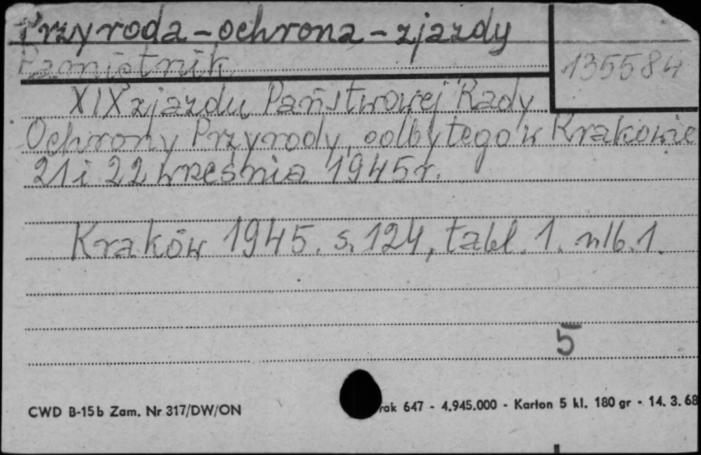 Przyroda - ochrona - zjazdy
135584
Pamiętnik
XIX zjazdu Państwowej Rady
Ochrony Przyrody, odbytego w Krakowie
21 i 22 września 1945 r.
Kraków 1945. s. 124, tabl. 1. nlb. 1.
5
CWD B-15b Zam. Nr 317/DW/ON
rak 647 - 4.945.000 - Karton 5 kl. 180 gr - 14. 3. 68